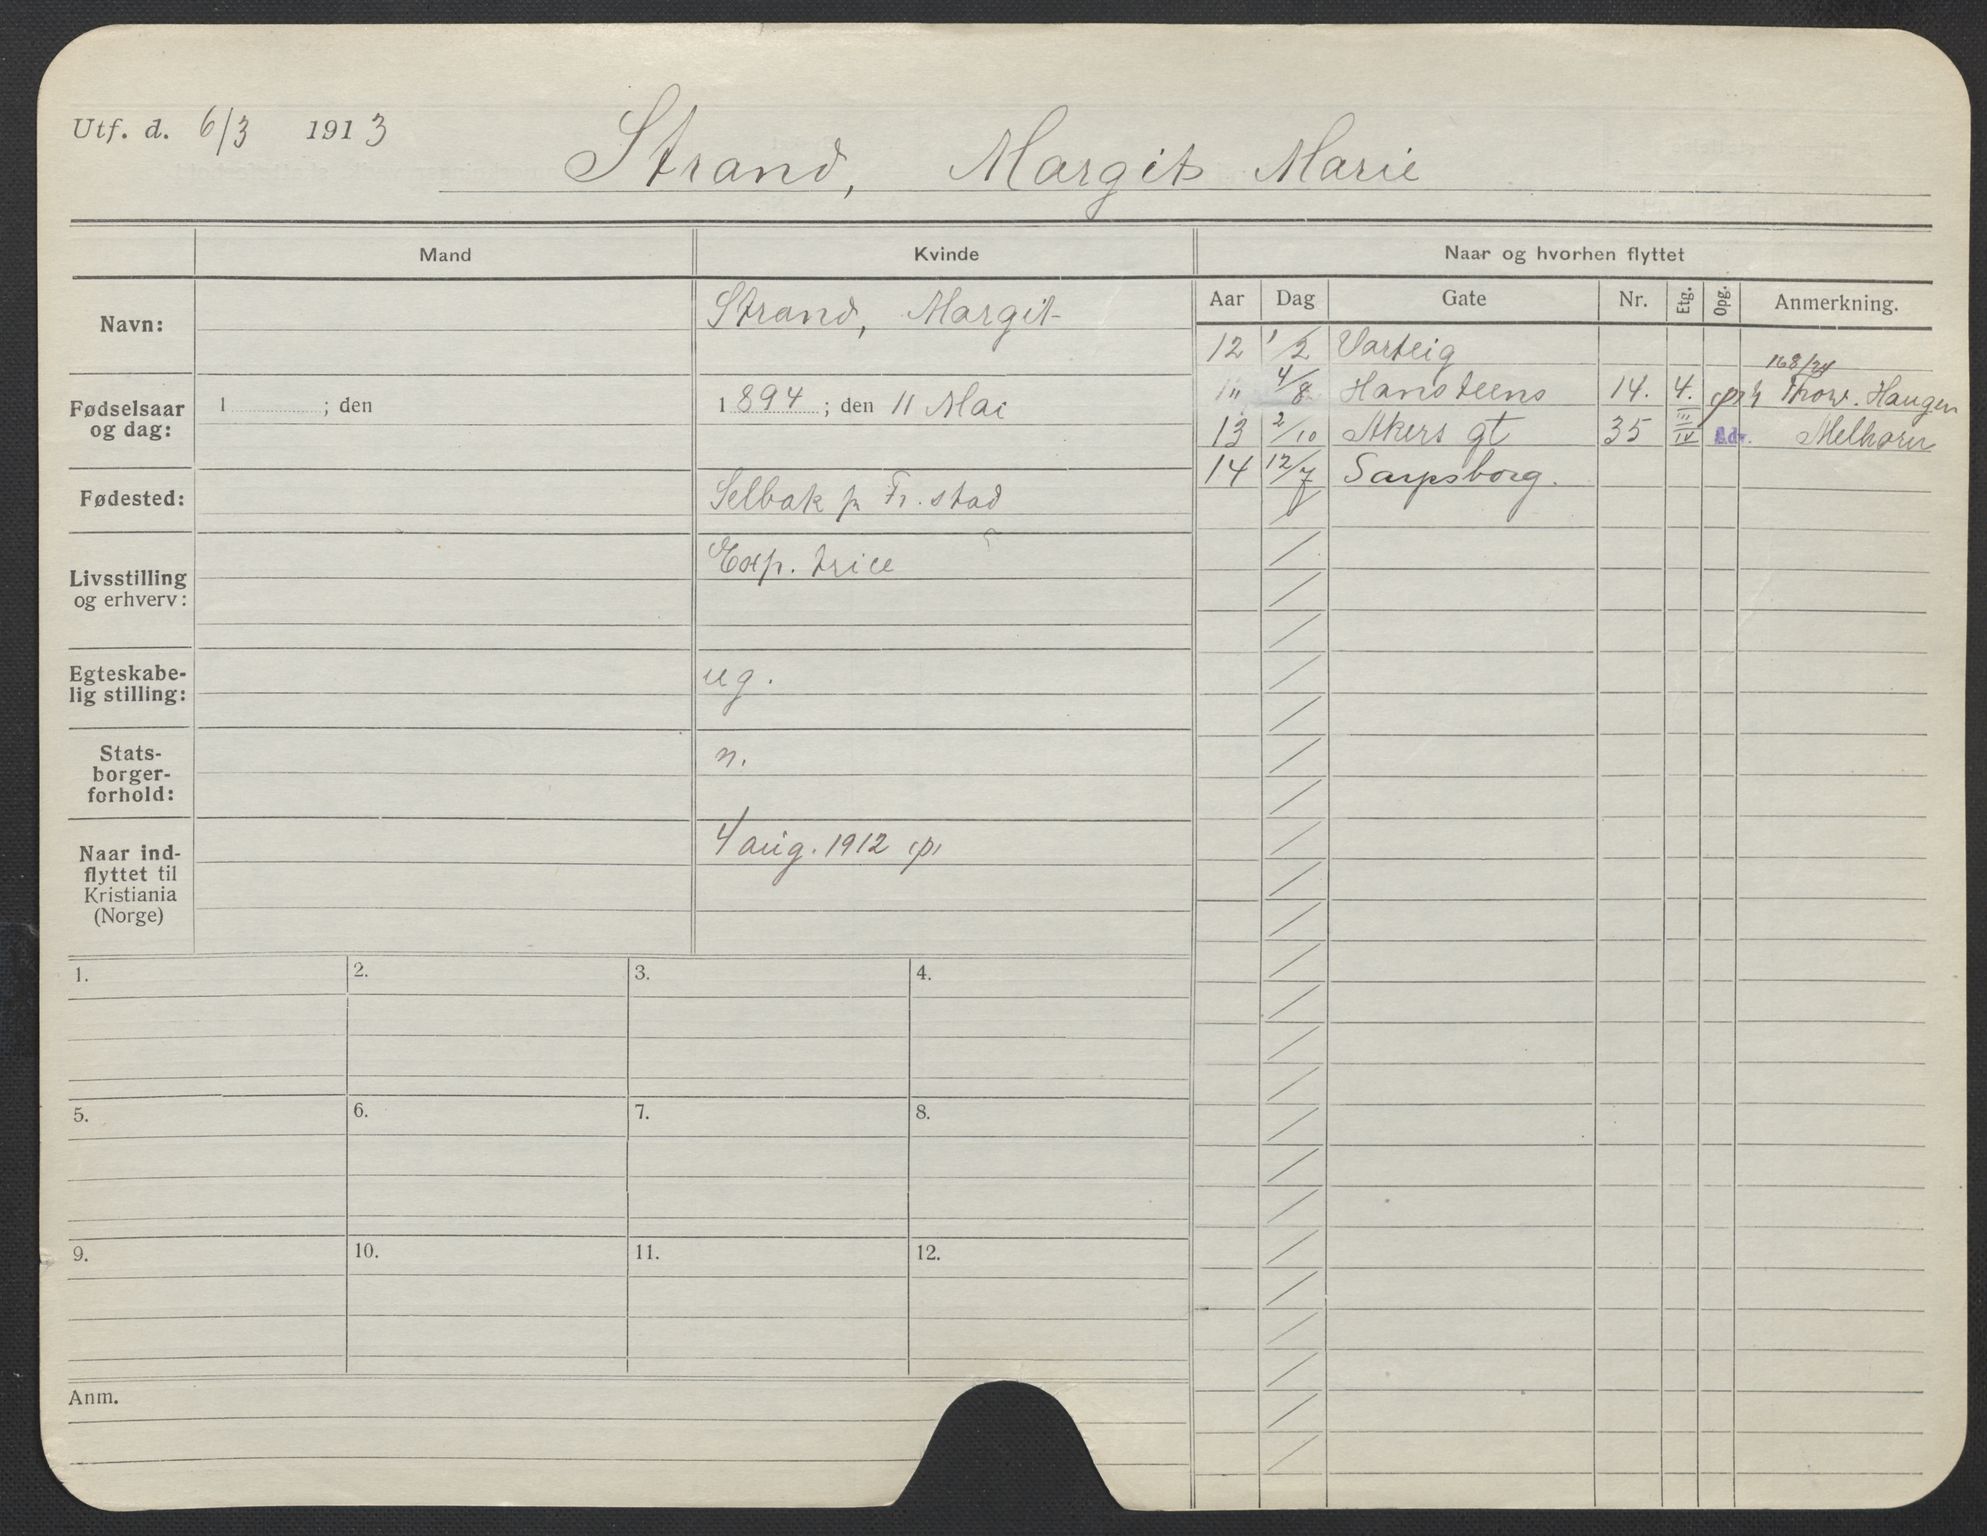 Utf. d. 6/3 1913
Strand, Margit Marie
Mand
Kvinde
Naar og hvorhen flyttet
Navn:
Strand, Margit
Fødselsaar
og dag:
1 ; den
1894; den 11 Mai
Fødested:
Selbak pr Fr.stad
Livsstilling
og erhverv:
Exp.trice
Egteskabe-
lig stilling:
ug.
Stats-
borger-
forhold:
n.
Naar ind-
flyttet til
Kristiania
(Norge)
4 aug. 1912
Aar Dag Gate Nr. Etg. Opg. Anmerkning.
12 1/2 Varteig
168/24
" 4/8 Hansteens 14. 4. Thorv. Haugen
13 2/10 Akers gt 35 III/IV Adr. Melhorn
14 12/7 Sarpsborg.
1. 2. 3. 4.
5. 6. 7. 8.
9. 10. 11. 12.
Anm.